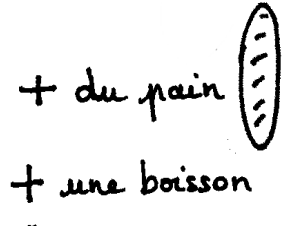 + du pain
+ une boisson